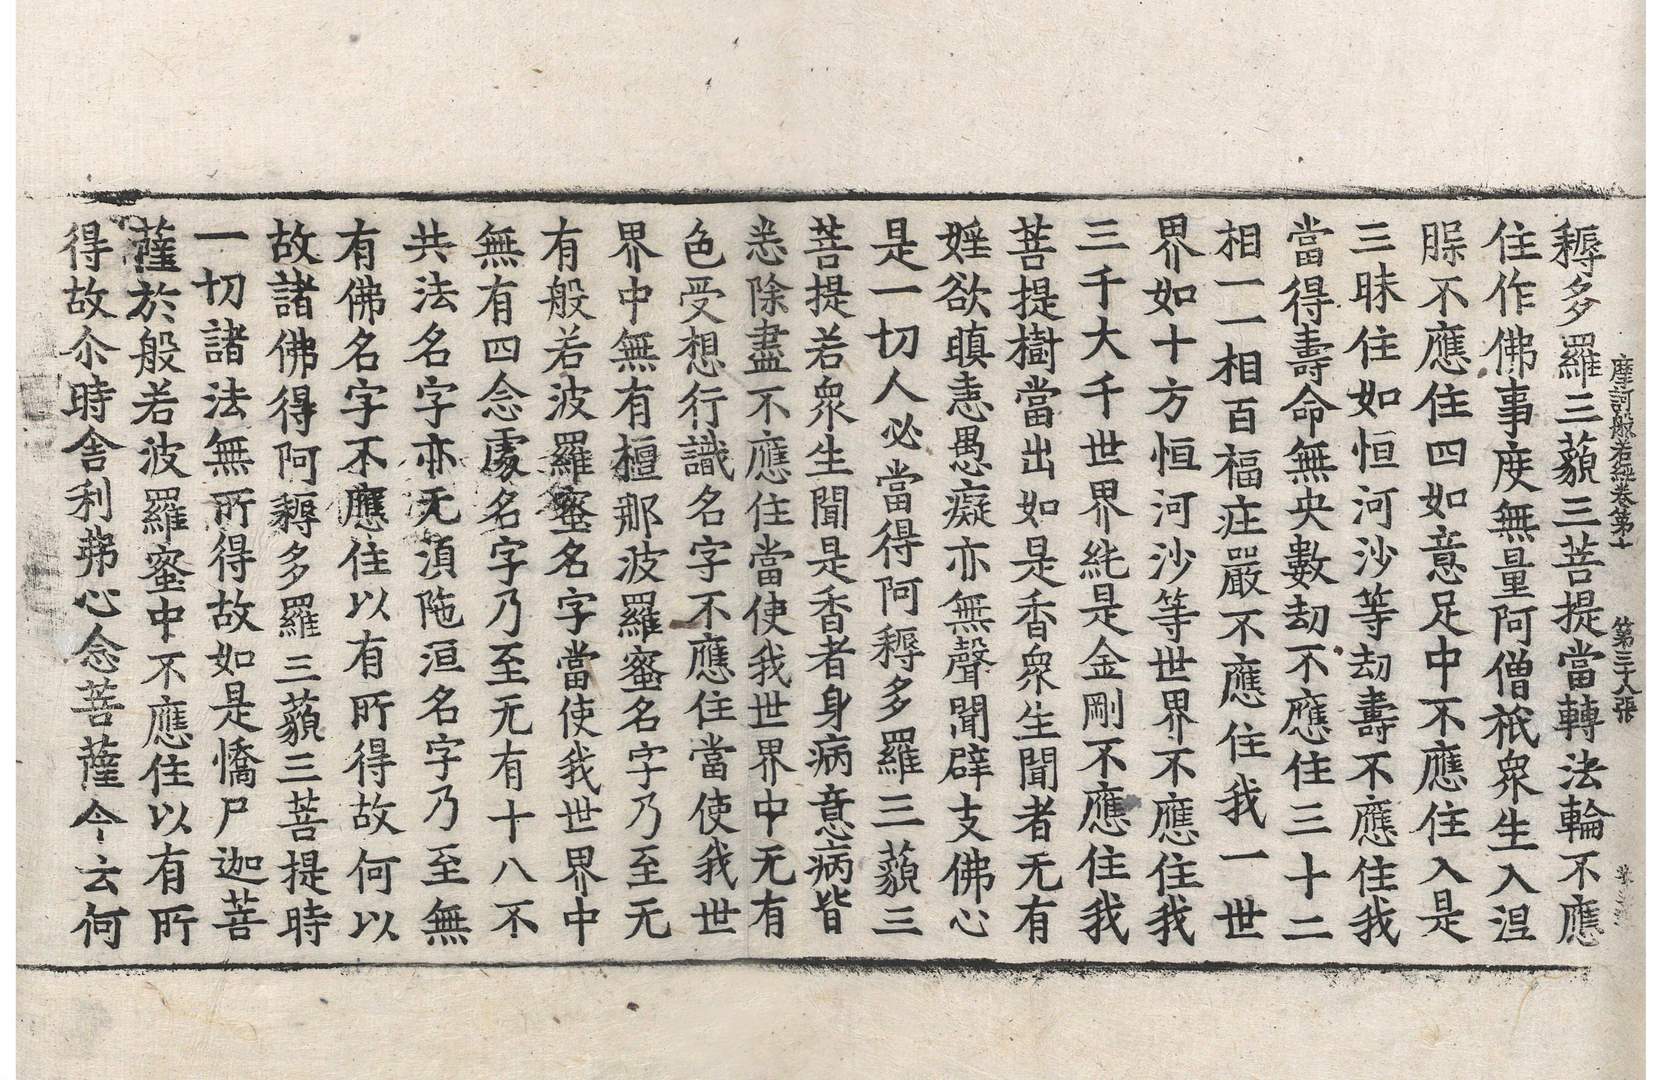 摩訶般若經卷第十 第三十八張
耨多羅三藐三菩提當轉法輪不應
住作佛事度無量阿僧祇衆生入涅
䐗不應住四如意足中不應住入是
三昧住如恒河沙等劫壽不應住我
當得壽命無央數劫不應住三十二
相一一相百福庄嚴不應住我一世
界如十方恒河沙等世界不應住我
三千大千世界純是金剛不應住我
菩提樹當出如是香衆生聞者无有
婬欲瞋恚愚癡亦無聲聞辟支佛心
是一切人必當得阿耨多羅三藐三
菩提若衆生聞是香者身病意病皆
悉除盡不應住當使我世界中无有
色受想行識名字不應住當使我世
界中無有檀那波羅蜜名字乃至无
有般若波羅蜜名字當使我世界中
無有四念處名字乃至无有十八不
共法名字亦无須陁洹名字乃至無
有佛名字不應住以有所得故何以
故諸佛得阿耨多羅三藐三菩提時
一切諸法無所得故如是憍尸迦菩
薩於般若波羅蜜中不應住以有所
得故尒時舍利弗心念菩薩今云何